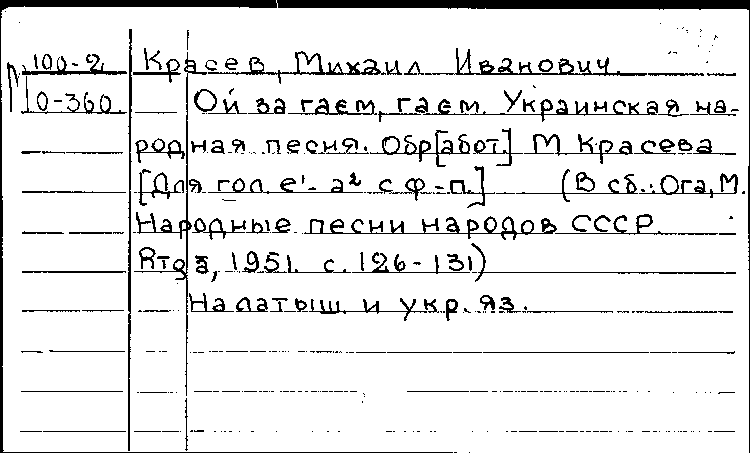 100-2 Красев, Михаил Иванович.
0-360. Ой за гаем, гаем. Украинская на-
родная песня. Обр[абот.] М Красева
[Для гол. e¹- a² с ф-п.] (В сб.: Ога, М.
Народные песни народов СССР.
1951. с. 126-131)
На латыш. и укр. яз.